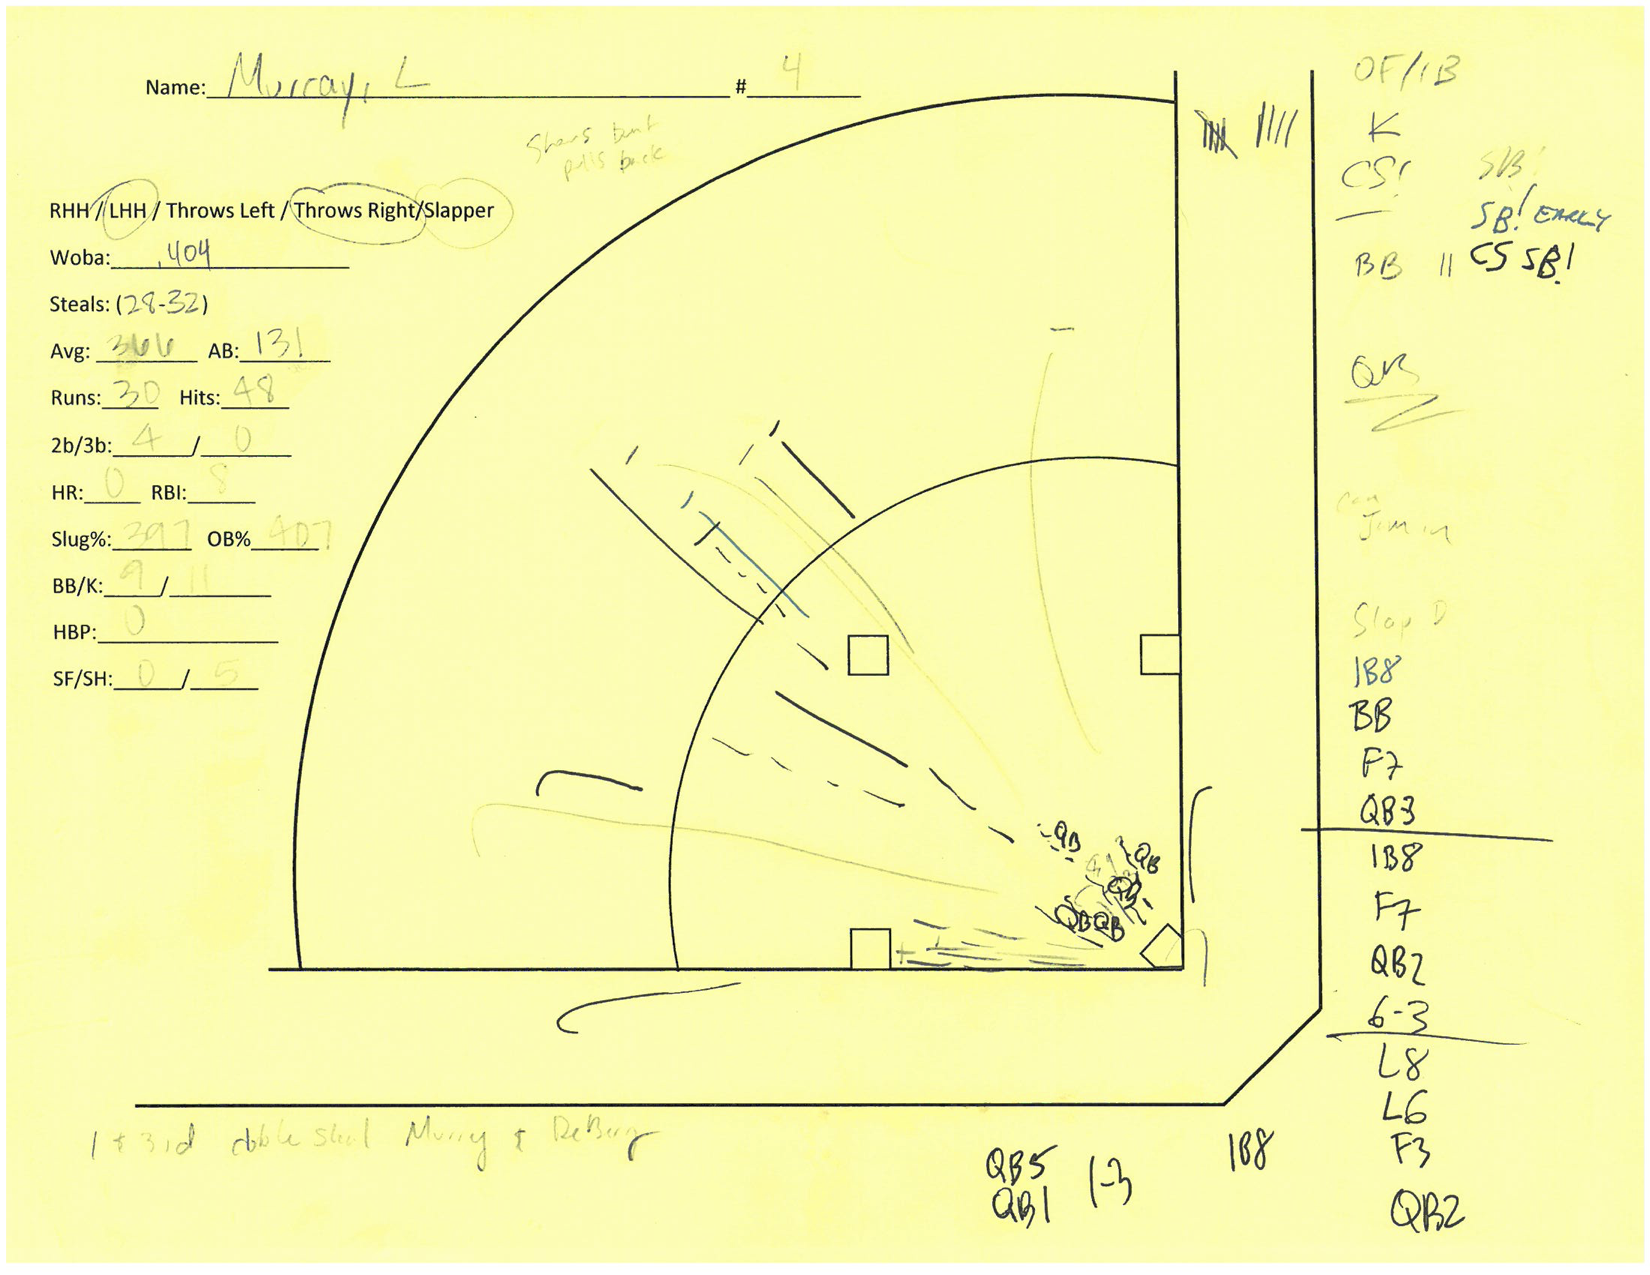 Name: Murray, L # 4
Shows bunt
pulls back
RHH / LHH / Throws Left / Throws Right/Slapper
Woba: .404
Steals: (28-32)
Avg: 366 AB: 131
Runs: 30 Hits: 48
2b/3b: 4 / 0
HR: 0 RBI: 8
Slug%: 397 OB% 407
BB/K: 9 / 11
HBP: 0
SF/SH: 0 / 5
OF/1B
K
CS! SB!
SB! EARLY
BB || CS SB!
QB
Can
Jam in
Slap D
1B8
BB
F7
QB3
1B8
F7
QB2
6-3
L8
L6
F3
QB2
QB
QB
QB
QB QB
1 & 3rd double steal Murry & DeBerg
QB5
QB1 1-3
1B8